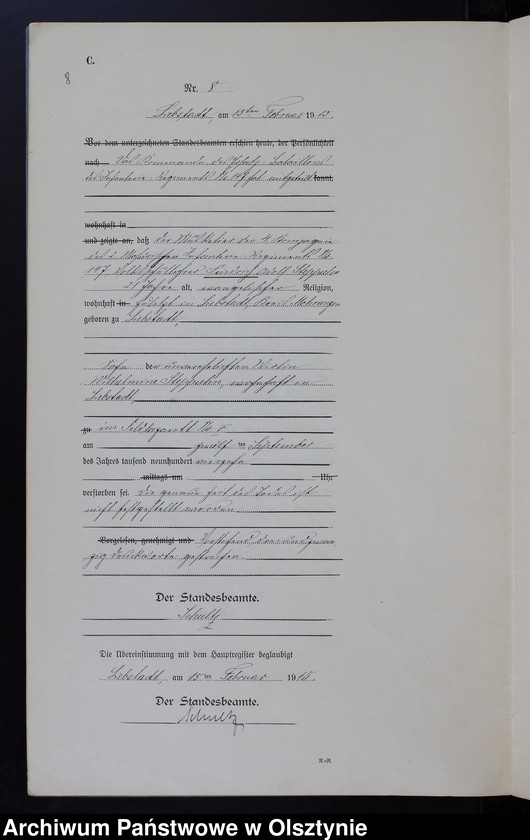 C.
8
Nr. 8
Liebstadt, am 15ten Februar 1915.
Vor dem unterzeichneten Standesbeamten erschien heute, der Persönlichkeit
nach Das Kommando des Ersatz-Bataillons
des Infanterie-Regiments No 147 hat mitgeteilt kannt,
wohnhaft in
und zeigte an, daß der Musketier der 4. Kompagnie
des 2. Masurischen Infanterie Regiments No.
147 Adolf
21 Jahre alt, evangelischer Religion,
wohnhaft in zuletzt in Liebstadt, Kreis Mohrungen
geboren zu Liebstadt,
Sohn der unverehelichten Wirtin
Wilhelmine wohnhaft in
Liebstadt,
zu im Feldlazarett No
am zwölf ten September
des Jahres tausend neunhundert vierzehn
mittags um Uhr
verstorben sei. Die genaue Zeit des Todes ist
nicht festgestellt worden.
Vorgelesen, genehmigt und Vorstehend
zig Druckworte gestrichen.
Der Standesbeamte.
Schultz
Die Übereinstimmung mit dem Hauptregister beglaubigt
Liebstadt, am 15ten Februar 1915.
Der Standesbeamte.
Schultz
R.-R.
Archiwum Państwowe w Olsztynie